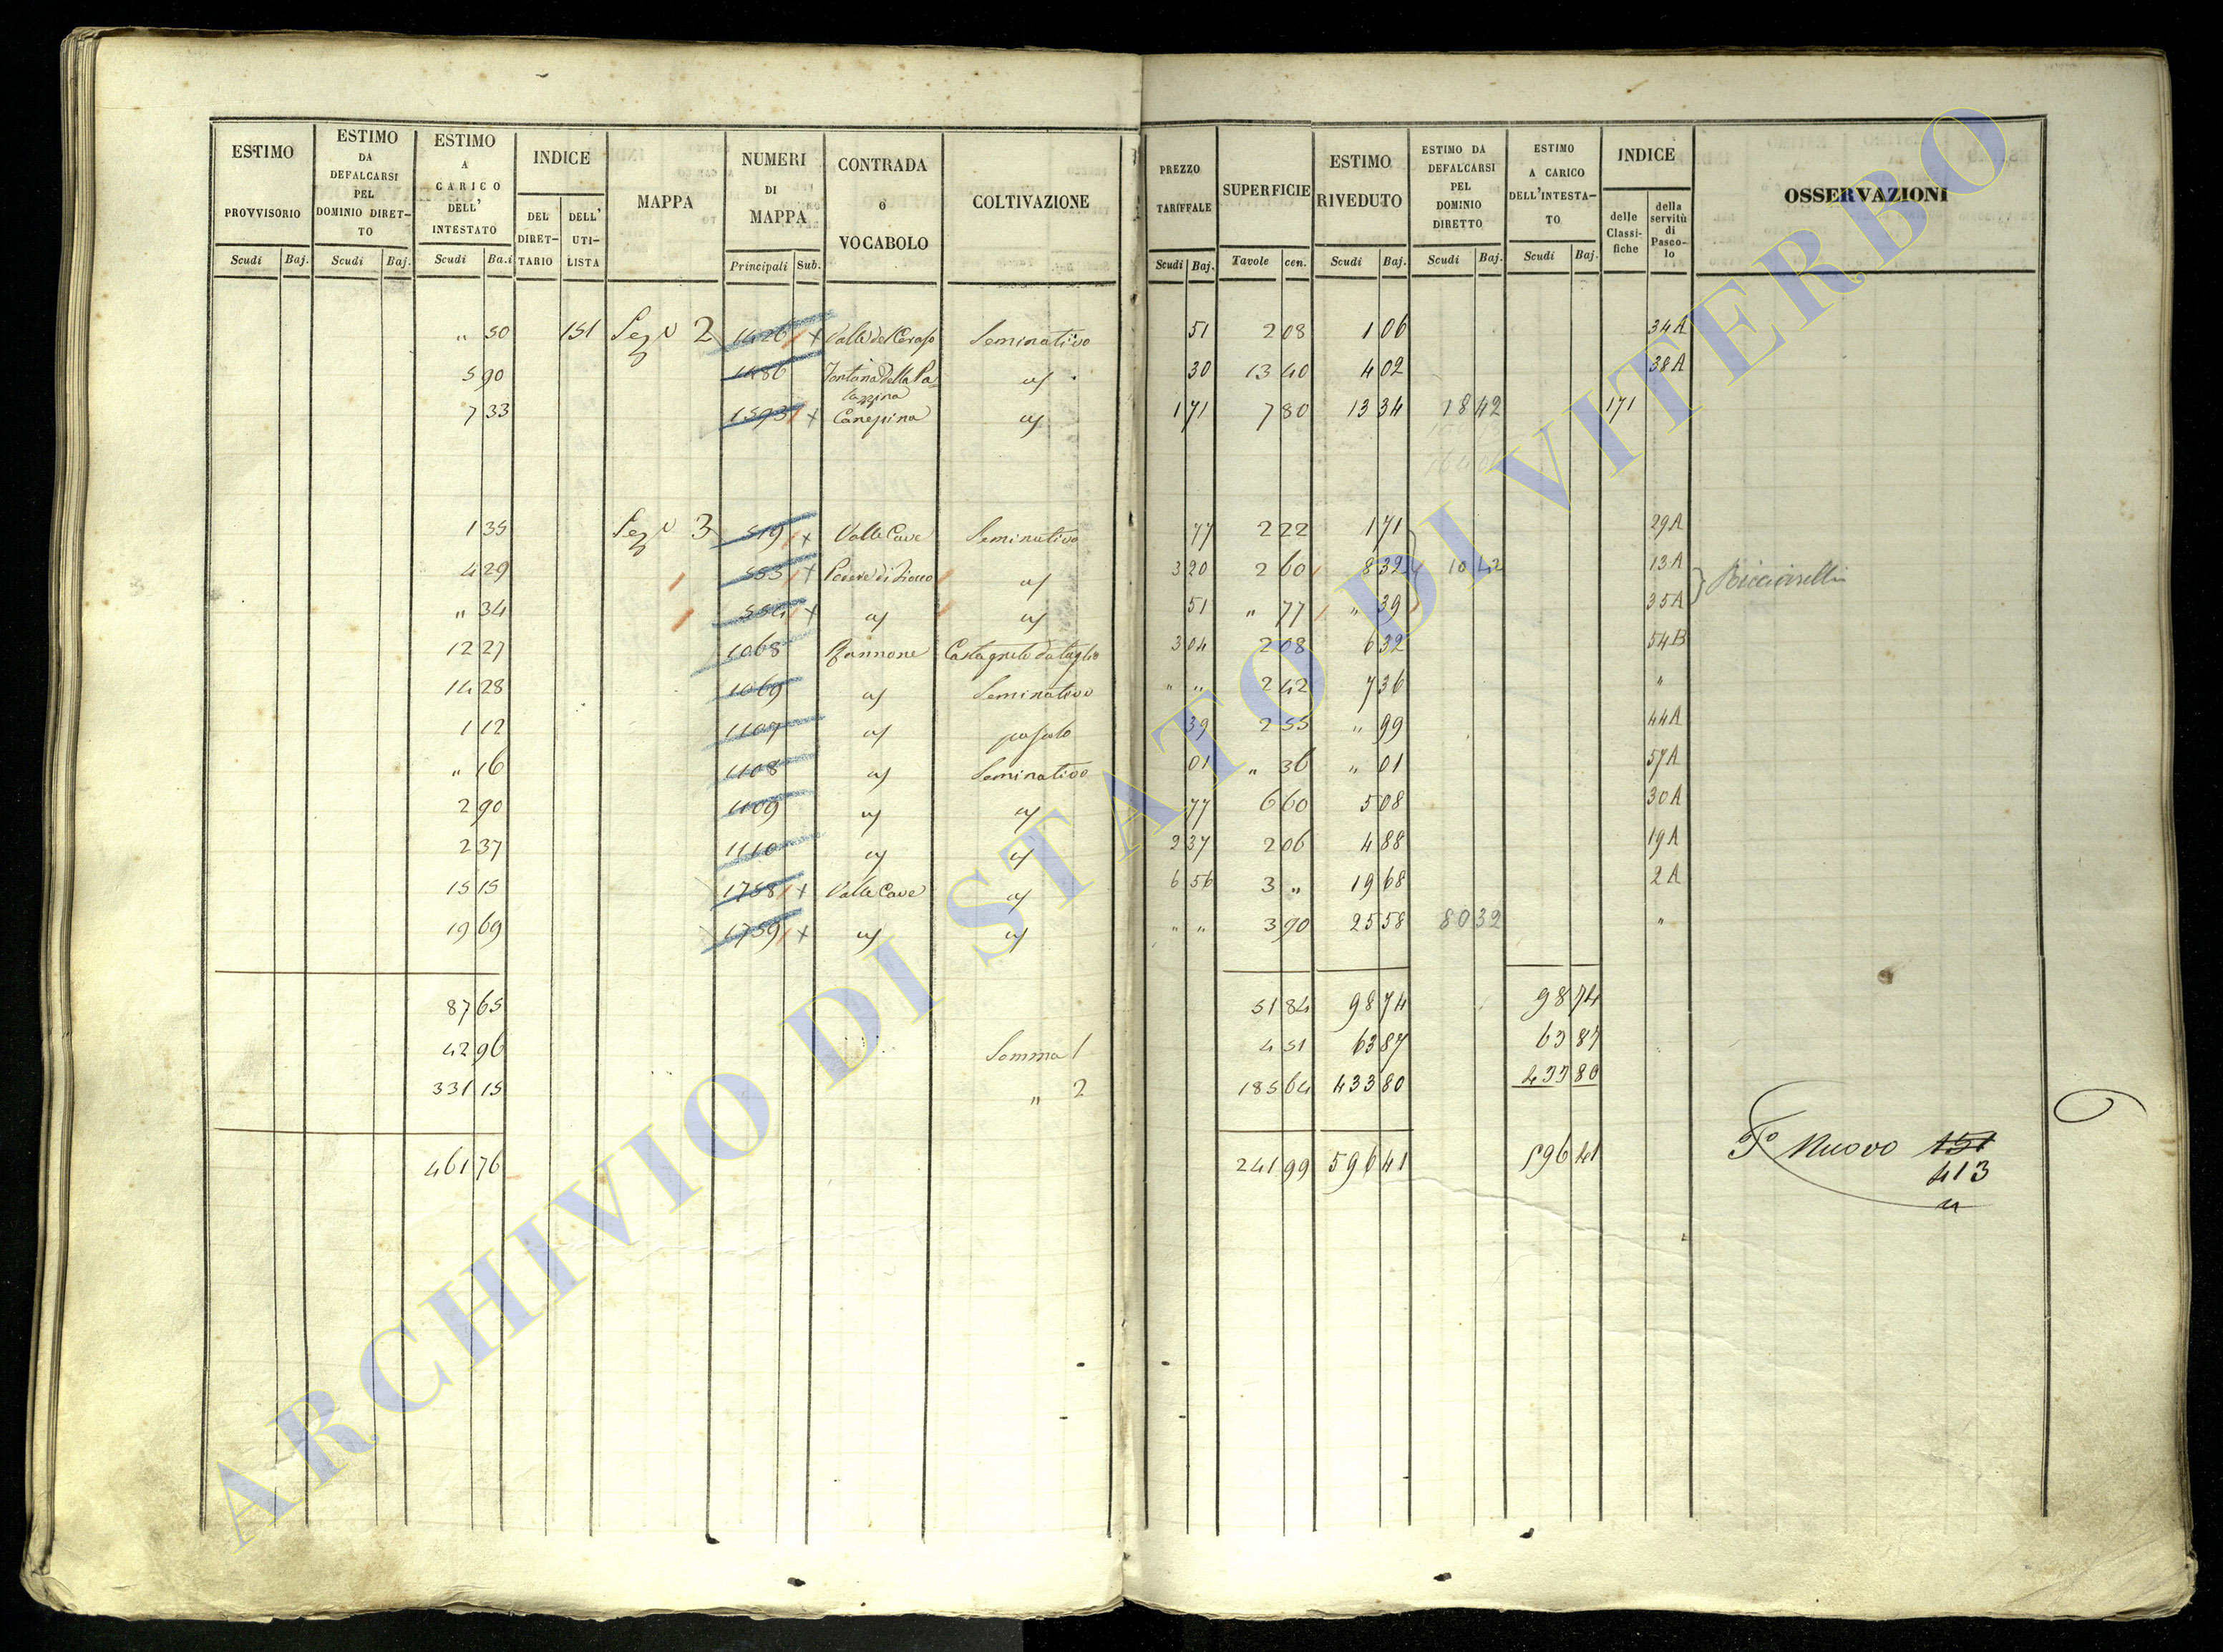 ESTIMO PROVVISORIO | ESTIMO DA DEFALCARSI PEL DOMINIO DIRETTO | ESTIMO A CARICO DELL' INTESTATO | INDICE | MAPPA | NUMERI DI MAPPA | CONTRADA o VOCABOLO | COLTIVAZIONE | PREZZO TARIFFALE | SUPERFICIE | ESTIMO RIVEDUTO | ESTIMO DA DEFALCARSI PEL DOMINIO DIRETTO | ESTIMO A CARICO DELL'INTESTATO | INDICE | OSSERVAZIONI
DEL DIRETTARIO | DELL' UTILISTA | delle Classifiche | della servitù di Pascolo
Scudi | Baj. | Scudi | Baj. | Scudi | Ba.i | Principali | Sub. | Scudi | Baj. | Tavole | cen. | Scudi | Baj. | Scudi | Baj. | Scudi | Baj.
" 50 | 151 | Sez N 2 | 1426 + | Valle del Ceraso | Seminativo | 51 | 2 08 | 1 06 | 34A
5 90 | 1486 | Fontana della Palazzina | 30 | 13 40 | 4 02 | 38A
7 33 | 1593 + | Canepina | 1 71 | 7 80 | 13 34 | 18 42 | 171
1 35 | Sez N 3 | 519 + | Valle Cave | Seminativo | 77 | 2 22 | 1 71 | 29A
4 29 | 553 + | 3 20 | 2 60 | 8 32 | 10 42 | 13A
" 34 | 554 + | 51 | " 77 | " 39 | 35A
12 27 | 1068 | Castagneto da taglio | 3 04 | 2 08 | 6 32 | 54B
14 28 | 1069 | Seminativo | " " | 2 42 | 7 36 | "
1 12 | 1107 | 39 | 2 55 | " 99 | 44A
" 16 | 1108 | Seminativo | 01 | " 36 | " 01 | 57A
2 90 | 1109 | 77 | 6 60 | 5 08 | 30A
2 37 | 1110 | 2 37 | 2 06 | 4 88 | 19A
15 15 | 1758 + | Valle Cave | 6 56 | 3 " | 19 68 | 2A
19 69 | 1759 + | " " | 3 90 | 25 58 | 80 32 | "
87 65 | 51 84 | 98 74 | 98 74
42 96 | Somma 1 | 4 51 | 63 87 | 63 87
331 15 | " 2 | 185 64 | 433 80 | 433 80
N Nuovo 151
413
461 76 | 241 99 | 596 41 | 596 41
ARCHIVIO DI STATO DI VITERBO